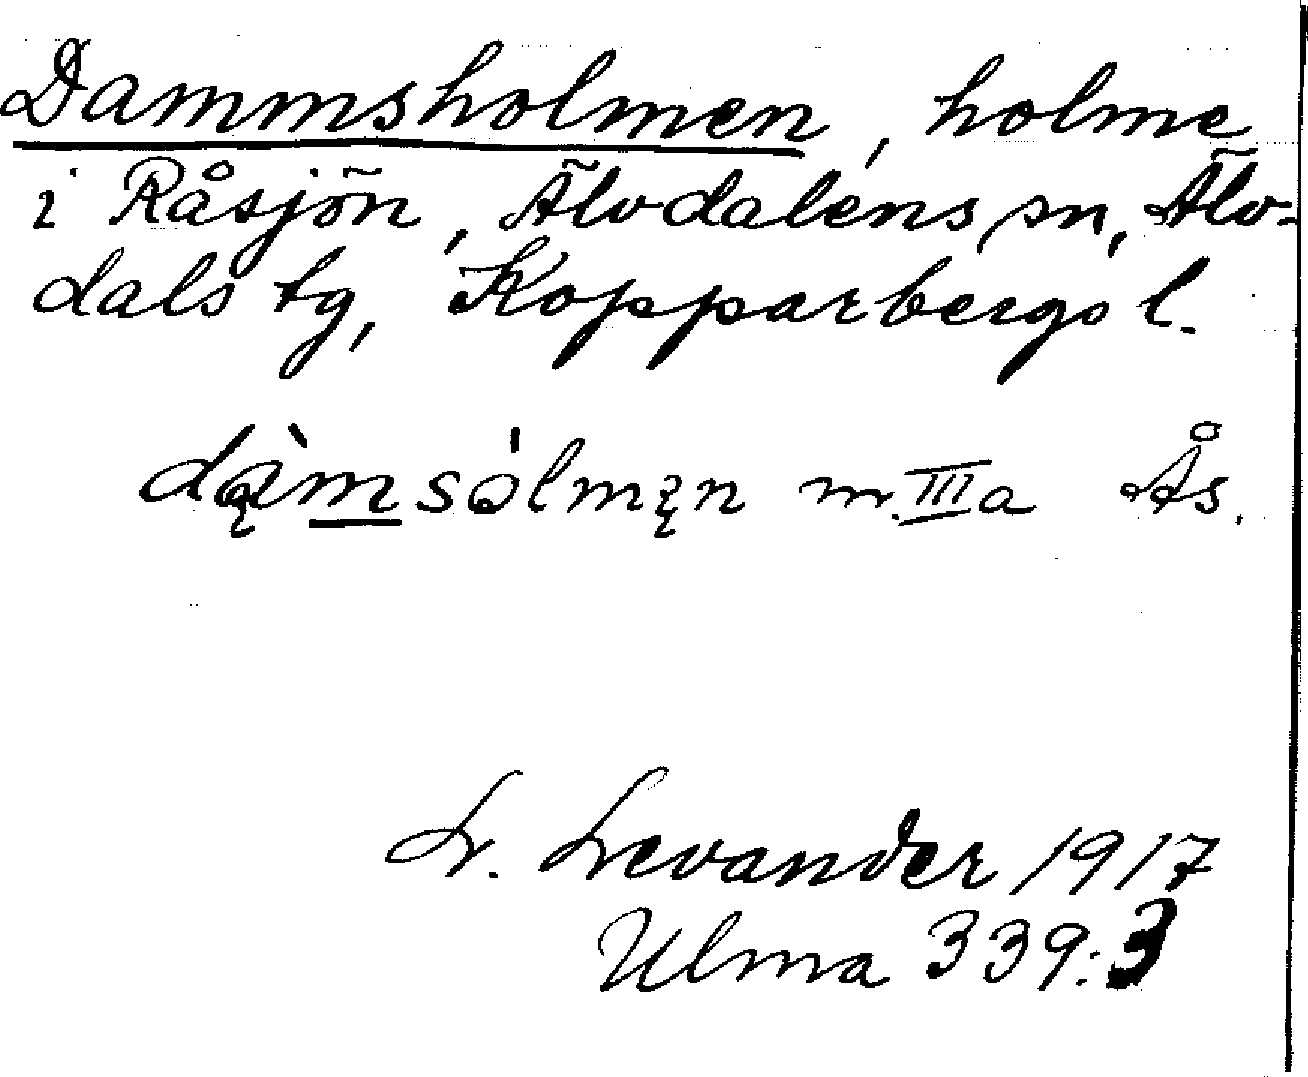 Dammsholmen, holme
i Råsjön, Älvdalens sn, Älv-
dals tg, Kopparbergs l.
dąmsǫlmęn m. IIIa Ås.
L. Levander 1917
Ulma 339:3